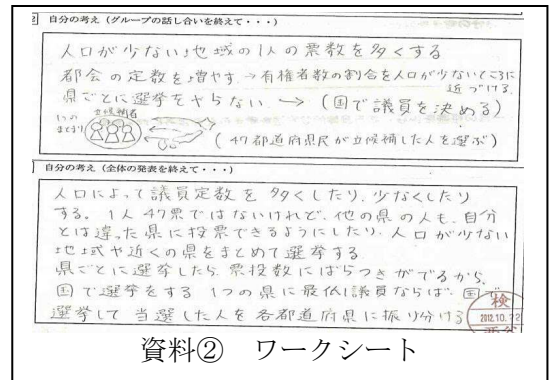 2 自分の考え（グループの話し合いを終えて・・・）
人口が少ない地域の1人の票数を多くする
都会の定数を増やす→有権者数の割合を人口が少ないところに
近づける
県ごとに選挙をやらない → （国で議員を決める）
1つの
まとまり
立候補者
（47都道府県民が立候補した人を選ぶ）
自分の考え（全体の発表を終えて・・・）
人口によって議員定数を多くしたり、少なくしたり
する。1人47票ではないけれど、他の県の人も、自分
とは違った県に投票できるようにしたり、人口が少ない
地域や近くの県をまとめて選挙する
県ごとに選挙したら、票投数にばらつきがでるから、
国で選挙をする 1つの県に最低1議員ならば、国で
選挙して当選した人を各都道府県に振り分ける
検
2012.10.22
資料② ワークシート